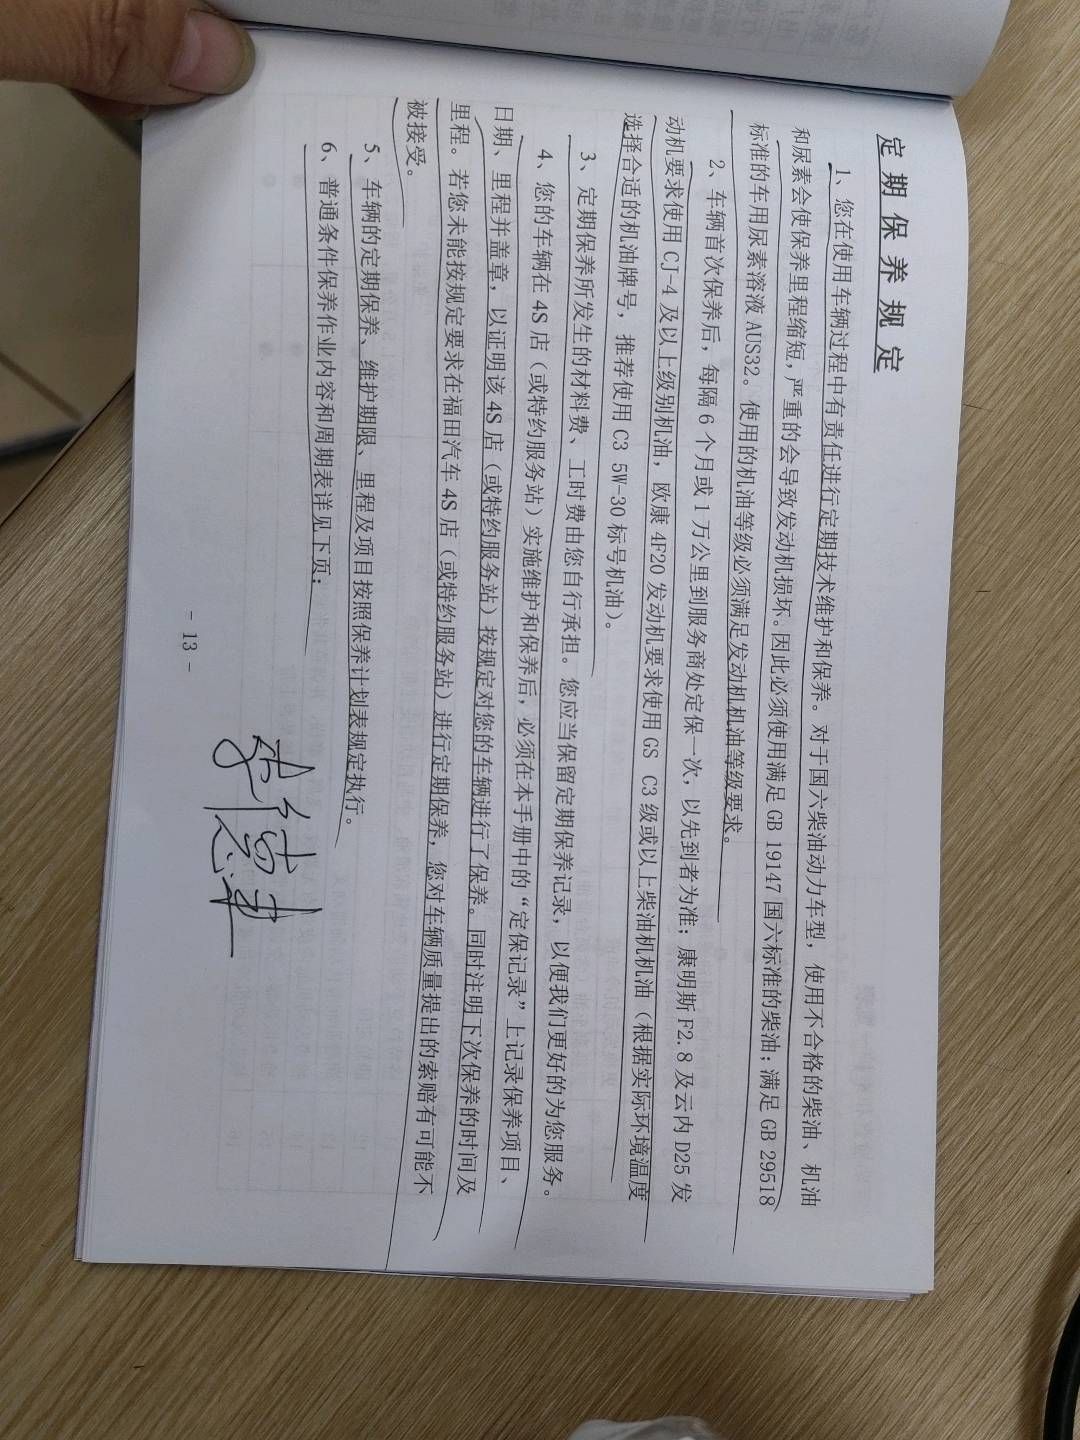 定期保养规定
1、您在使用车辆过程中有责任进行定期技术维护和保养。对于国六柴油动力车型，使用不合格的柴油、机油
和尿素会使保养里程缩短，严重的会导致发动机损坏。因此必须使用满足 GB 19147 国六标准的柴油；满足 GB 29518
标准的车用尿素溶液 AUS32。使用的机油等级必须满足发动机机油等级要求。
2、车辆首次保养后，每隔 6 个月或 1 万公里到服务商处定保一次，以先到者为准；康明斯 F2.8 及云内 D25 发
动机要求使用 CJ-4 及以上级别机油，欧康 4F20 发动机要求使用 GS C3 级或以上柴油机机油（根据实际环境温度
选择合适的机油牌号，推荐使用 C3 5W-30 标号机油）。
3、定期保养所发生的材料费、工时费由您自行承担。您应当保留定期保养记录，以便我们更好的为您服务。
4、您的车辆在 4S 店（或特约服务站）实施维护和保养后，必须在本手册中的“定保记录”上记录保养项目、
日期、里程并盖章，以证明该 4S 店（或特约服务站）按规定对您的车辆进行了保养。同时注明下次保养的时间及
里程。若您未能按规定要求在福田汽车 4S 店（或特约服务站）进行定期保养，您对车辆质量提出的索赔有可能不
被接受。
5、车辆的定期保养、维护期限、里程及项目按照保养计划表规定执行。
6、普通条件保养作业内容和周期表详见下页：
- 13 -